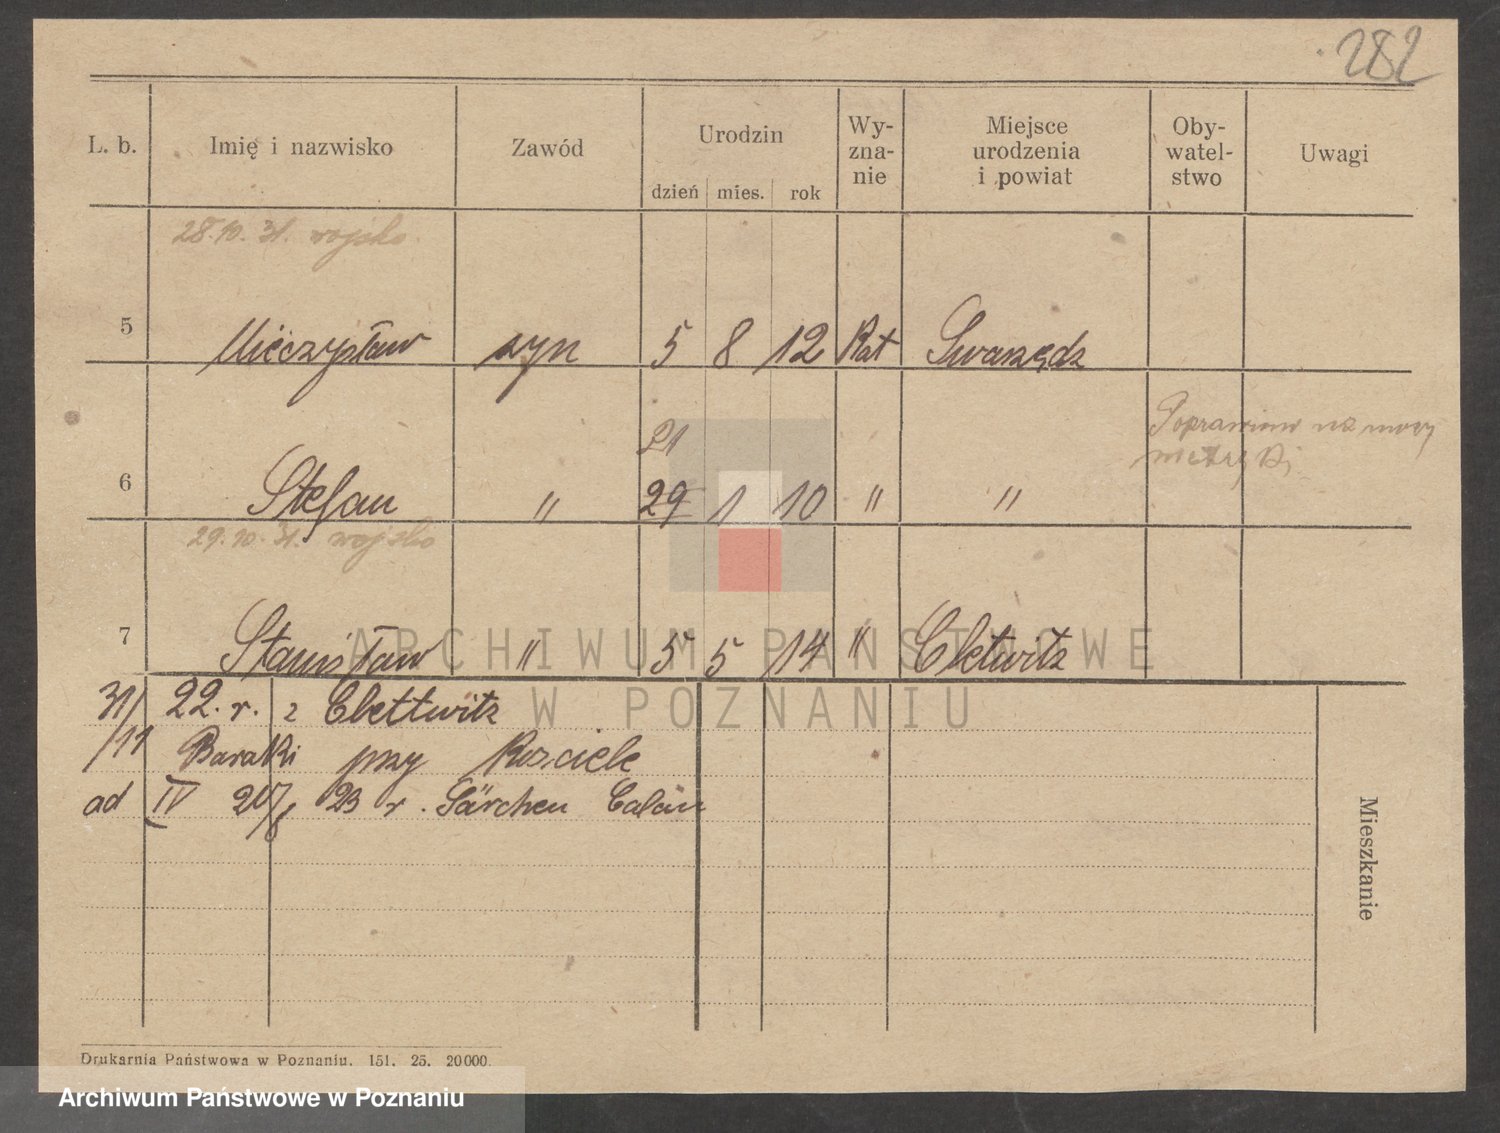 282
L. b. Imię i nazwisko Zawód Urodzin Wy-zna-nie Miejsce urodzenia i powiat Oby-watel-stwo Uwagi
dzień mies. rok
28.10.31. wojsko
5 Mieczysław syn 5 8 12 Kat Swarzędz
21
Poprawiono
metryki
6 Stefan " 29 1 10 " "
29.10.31. wojsko
7 Stanisław " 5 5 14 " Cletwitz
31/ 22. r. z Clettwitz
/11 Baraki przy Kościele
ad IV 20/6 23 r. Särchen Calau
Mieszkanie
ARCHIWUM PAŃSTWOWE
W POZNANIU
Drukarnia Państwowa w Poznaniu. 151. 25. 20000.
Archiwum Państwowe w Poznaniu